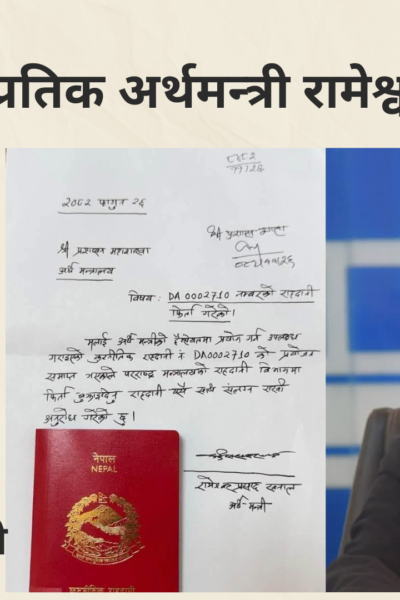 प्रतिक अर्थमन्त्री रामेश्व
२०८२
११/२६
२०८२ फागुन २६
श्री प्रशासन महाशाखा
अर्थ मन्त्रालय
विषय: DA0002710 नम्बरको राहदानी
फिर्ता गरेको।
मलाई अर्थ मन्त्रीको हैसियतमा प्रयोग गर्न उपलब्ध
गराइएको कुटनीतिक राहदानी नं DA0002710 को प्रयोजन
समाप्त भएकोले परराष्ट्र मन्त्रालयको राहदानी विभागमा
फिर्ता बुझाइदिनु राहदानी यसै साथ संलग्न राखी
अनुरोध गरेको छु।
रामेश्वर प्रसाद खनाल
अर्थ मन्त्री
नेपाल
NEPAL
कूटनीतिक राहदानी